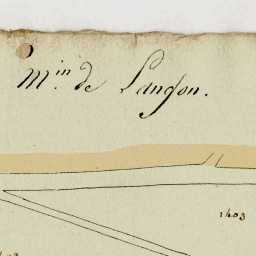 Min. de Langon.
1403